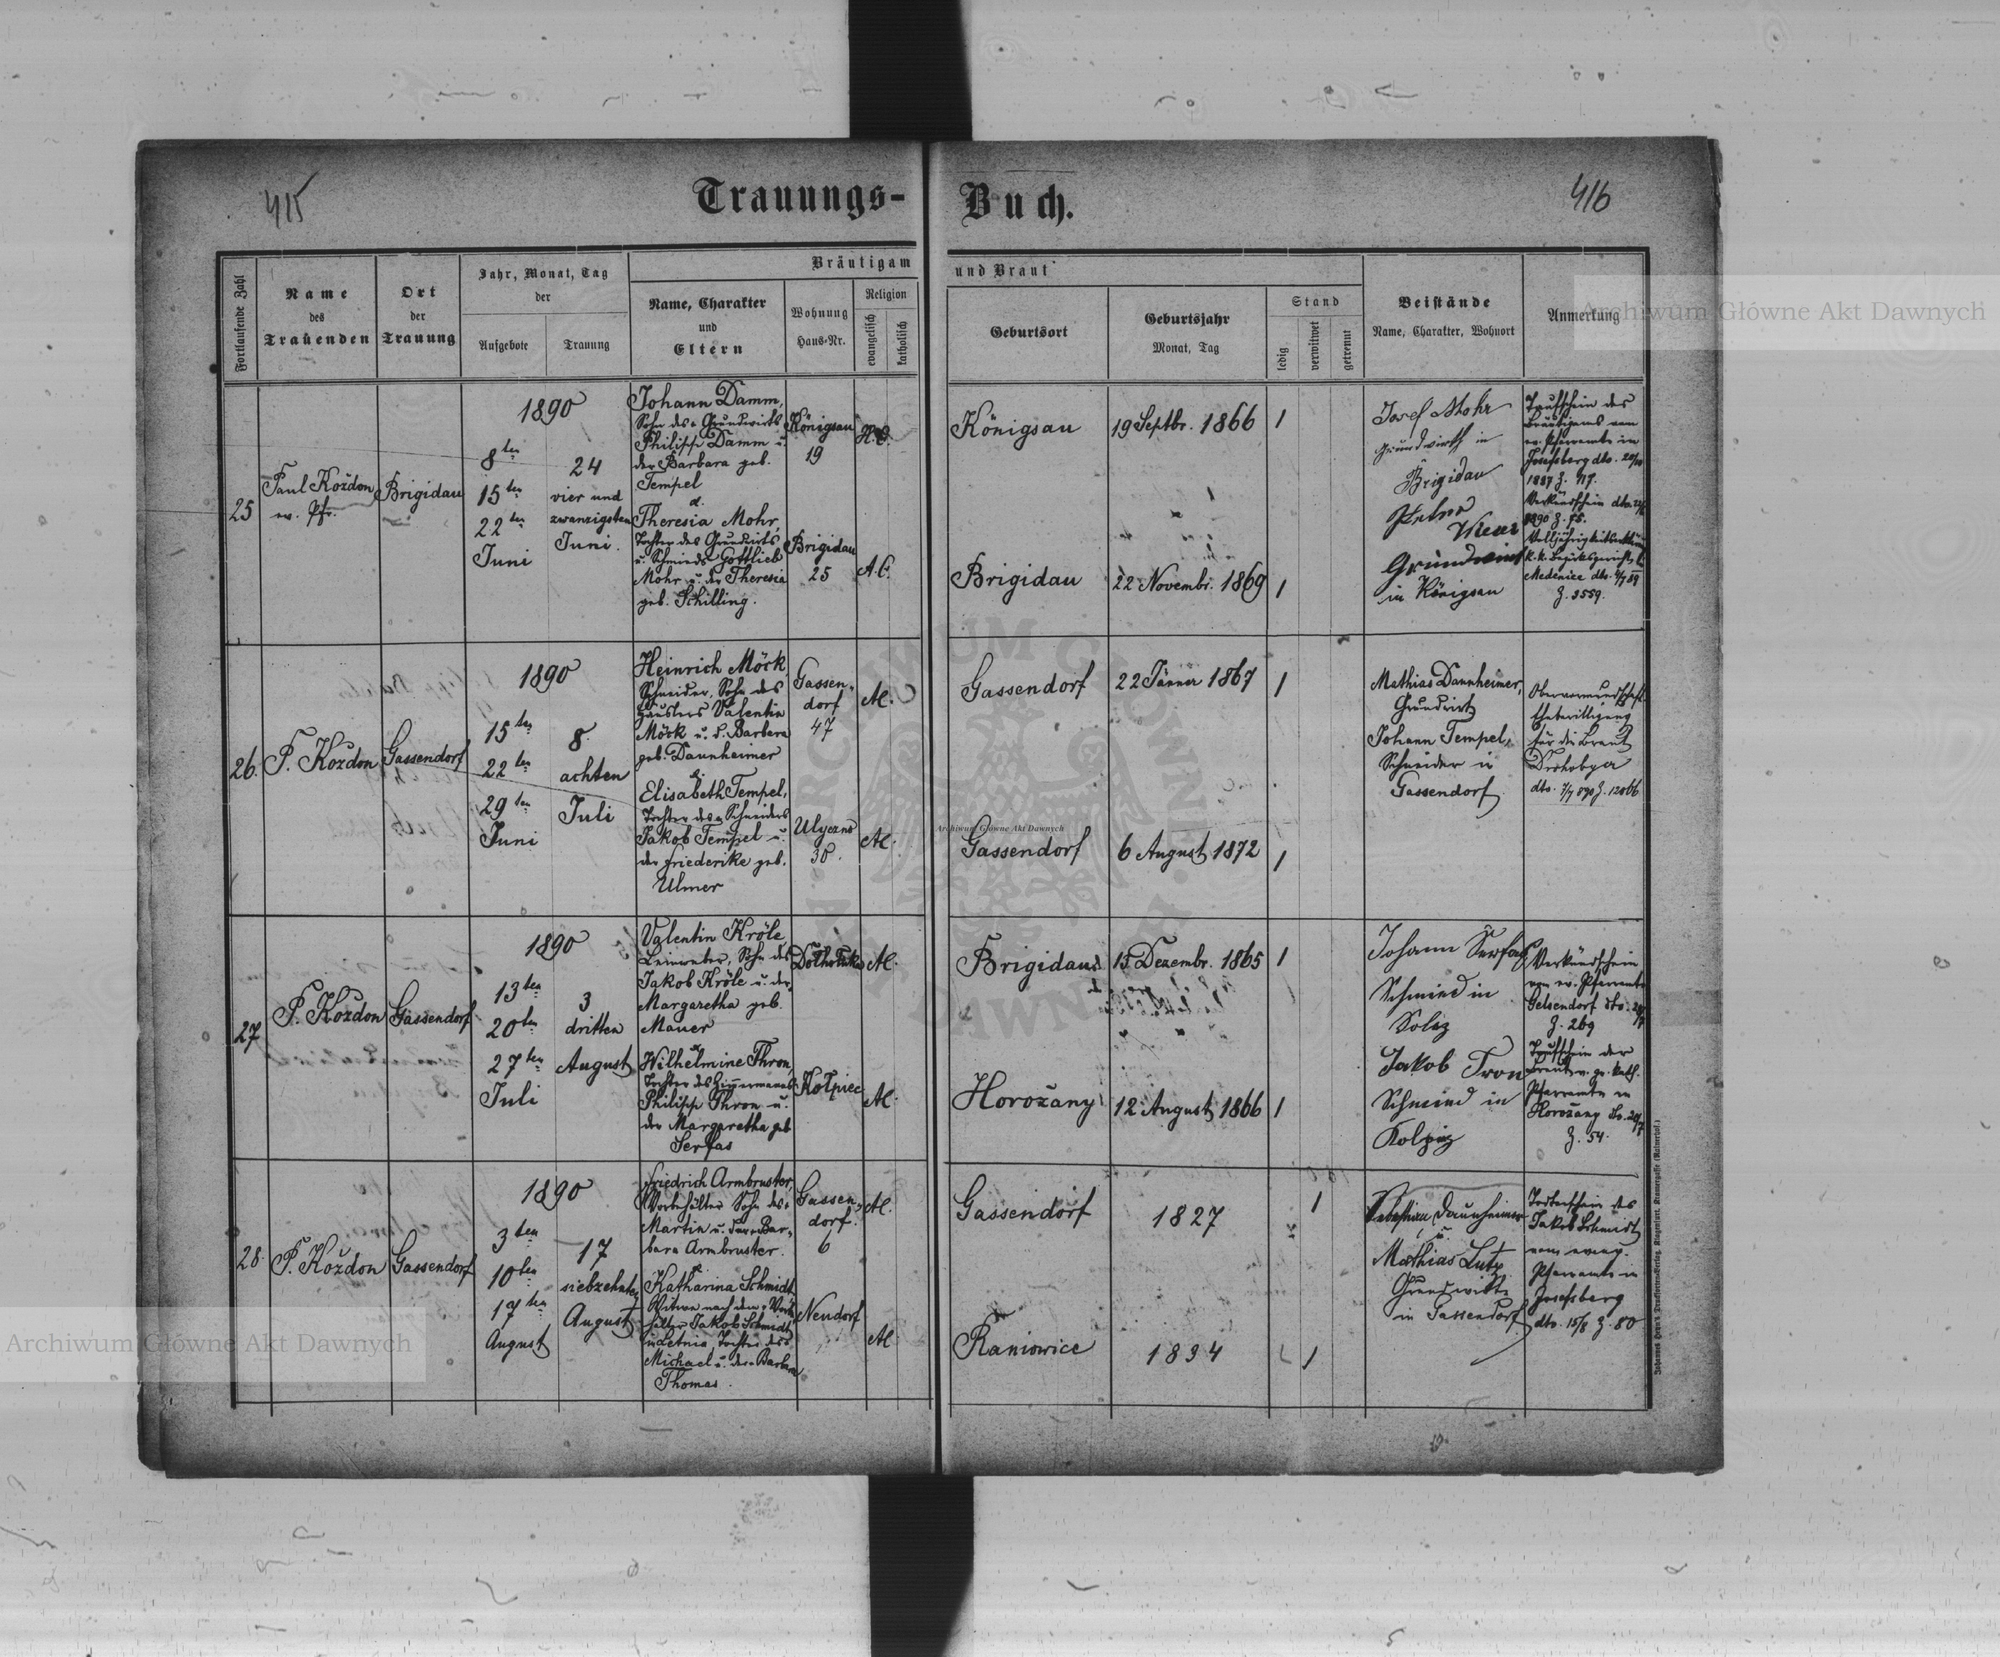 415
Trauungs-
Buch.
416
Fortlaufende Zahl
Name
des
Trauenden
Ort
der
Trauung
Jahr, Monat, Tag
der
Aufgebote
Trauung
Bräutigam
und Braut
Name, Charakter
und
Eltern
Wohnung
Haus-Nr.
Religion
evangelisch
katholisch
Geburtsort
Geburtsjahr
Monat, Tag
Stand
ledig
verwitwet
getrennt
Beistände
Name, Charakter, Wohnort
Anmerkung
25
Paul Kozdon
ev. Pfr.
Brigidau
1890
8ten
15ten
22ten
Juni
24
vier und
zwanzigsten
Juni.
Johann Damm,
Sohn des Grundwirts
Philipp Damm u.
der Barbara geb.
Tempel
Theresia Mohr,
Tochter des Grundwirts
u. Schmieds Gottlieb
Mohr u. der Theresia
geb. Schilling.
Königsau
19
Brigidau
25
H.C.
A.C.
Königsau
Brigidau
19 Septbr. 1866
22 Novembr. 1869
1
1
Josef Mohr
Grundwirth in
Brigidau
in Königsau
Taufschein des
Bräutigams vom
ev. Pfarramte in
Josefsberg dto.
Z. 3559.
26.
P. Kozdon
Gassendorf
1890
15ten
22ten
29ten
Juni
8
achten
Juli
Heinrich Möck
Schneider, Sohn des
Häuslers Valentin
Möck u. d. Barbara
geb. Daunheimer
Elisabeth Tempel,
Tochter des Schneiders
Jakob Tempel u.
der Friederike geb.
Ulmer
Gassen-
dorf
47
Ulyczno
30.
AC.
AC.
Gassendorf
Gassendorf
22 Jänner 1867
6 August 1872
1
1
Mathias Daunheimer,
Grundwirt
Johann Tempel,
Schneider in
Gassendorf
für die Braut
27
P. Kozdon
Gassendorf
1890
13ten
20ten
27ten
Juli
3
dritten
August
Valentin Kröle
Leinweber, Sohn des
Jakob Kröle u. der
Margaretha geb.
Mauer
Wilhelmine Thron,
Tochter des Zimmermanns
Philipp Thron u.
der Margaretha geb
Serfas
Kolpiec
AC.
AC.
Brigidau
Horožany
15 Dezembr. 1865
12 August 1866
1
1
Johann Serfas
Schmied in
Jakob Tron
Schmied in
Verkündschein
vom ev. Pfarramte
Gelsendorf
Z. 269
Taufschein der
Braut v. gr. kath.
Pfarramte in
Horožany
Z. 54.
28
P. Kozdon
Gassendorf
1890
3ten
10ten
17ten
August
17
siebzehnten
August
Friedrich Armbruster,
Sohn des
Martin u. der Bar-
bara Armbruster.
Katharina Schmidt
Witwe nach dem
Jakob Schmidt
in Letnia, Tochter des
Michael u. der Barbara
Thomas.
Gassen-
dorf.
6
Neudorf
AC.
AC.
Gassendorf
Raniowice
1827
1834
1
1
Daunheimer
u.
Mathias Lutz
Grundwirte
in Gassendorf
Totenschein des
Jakob Schmidt
vom evang.
Pfarramte in
Josefsberg
dto. 15/8 Z. 80
Archiwum Główne Akt Dawnych
Archiwum Główne Akt Dawnych
Archiwum Główne Akt Dawnych